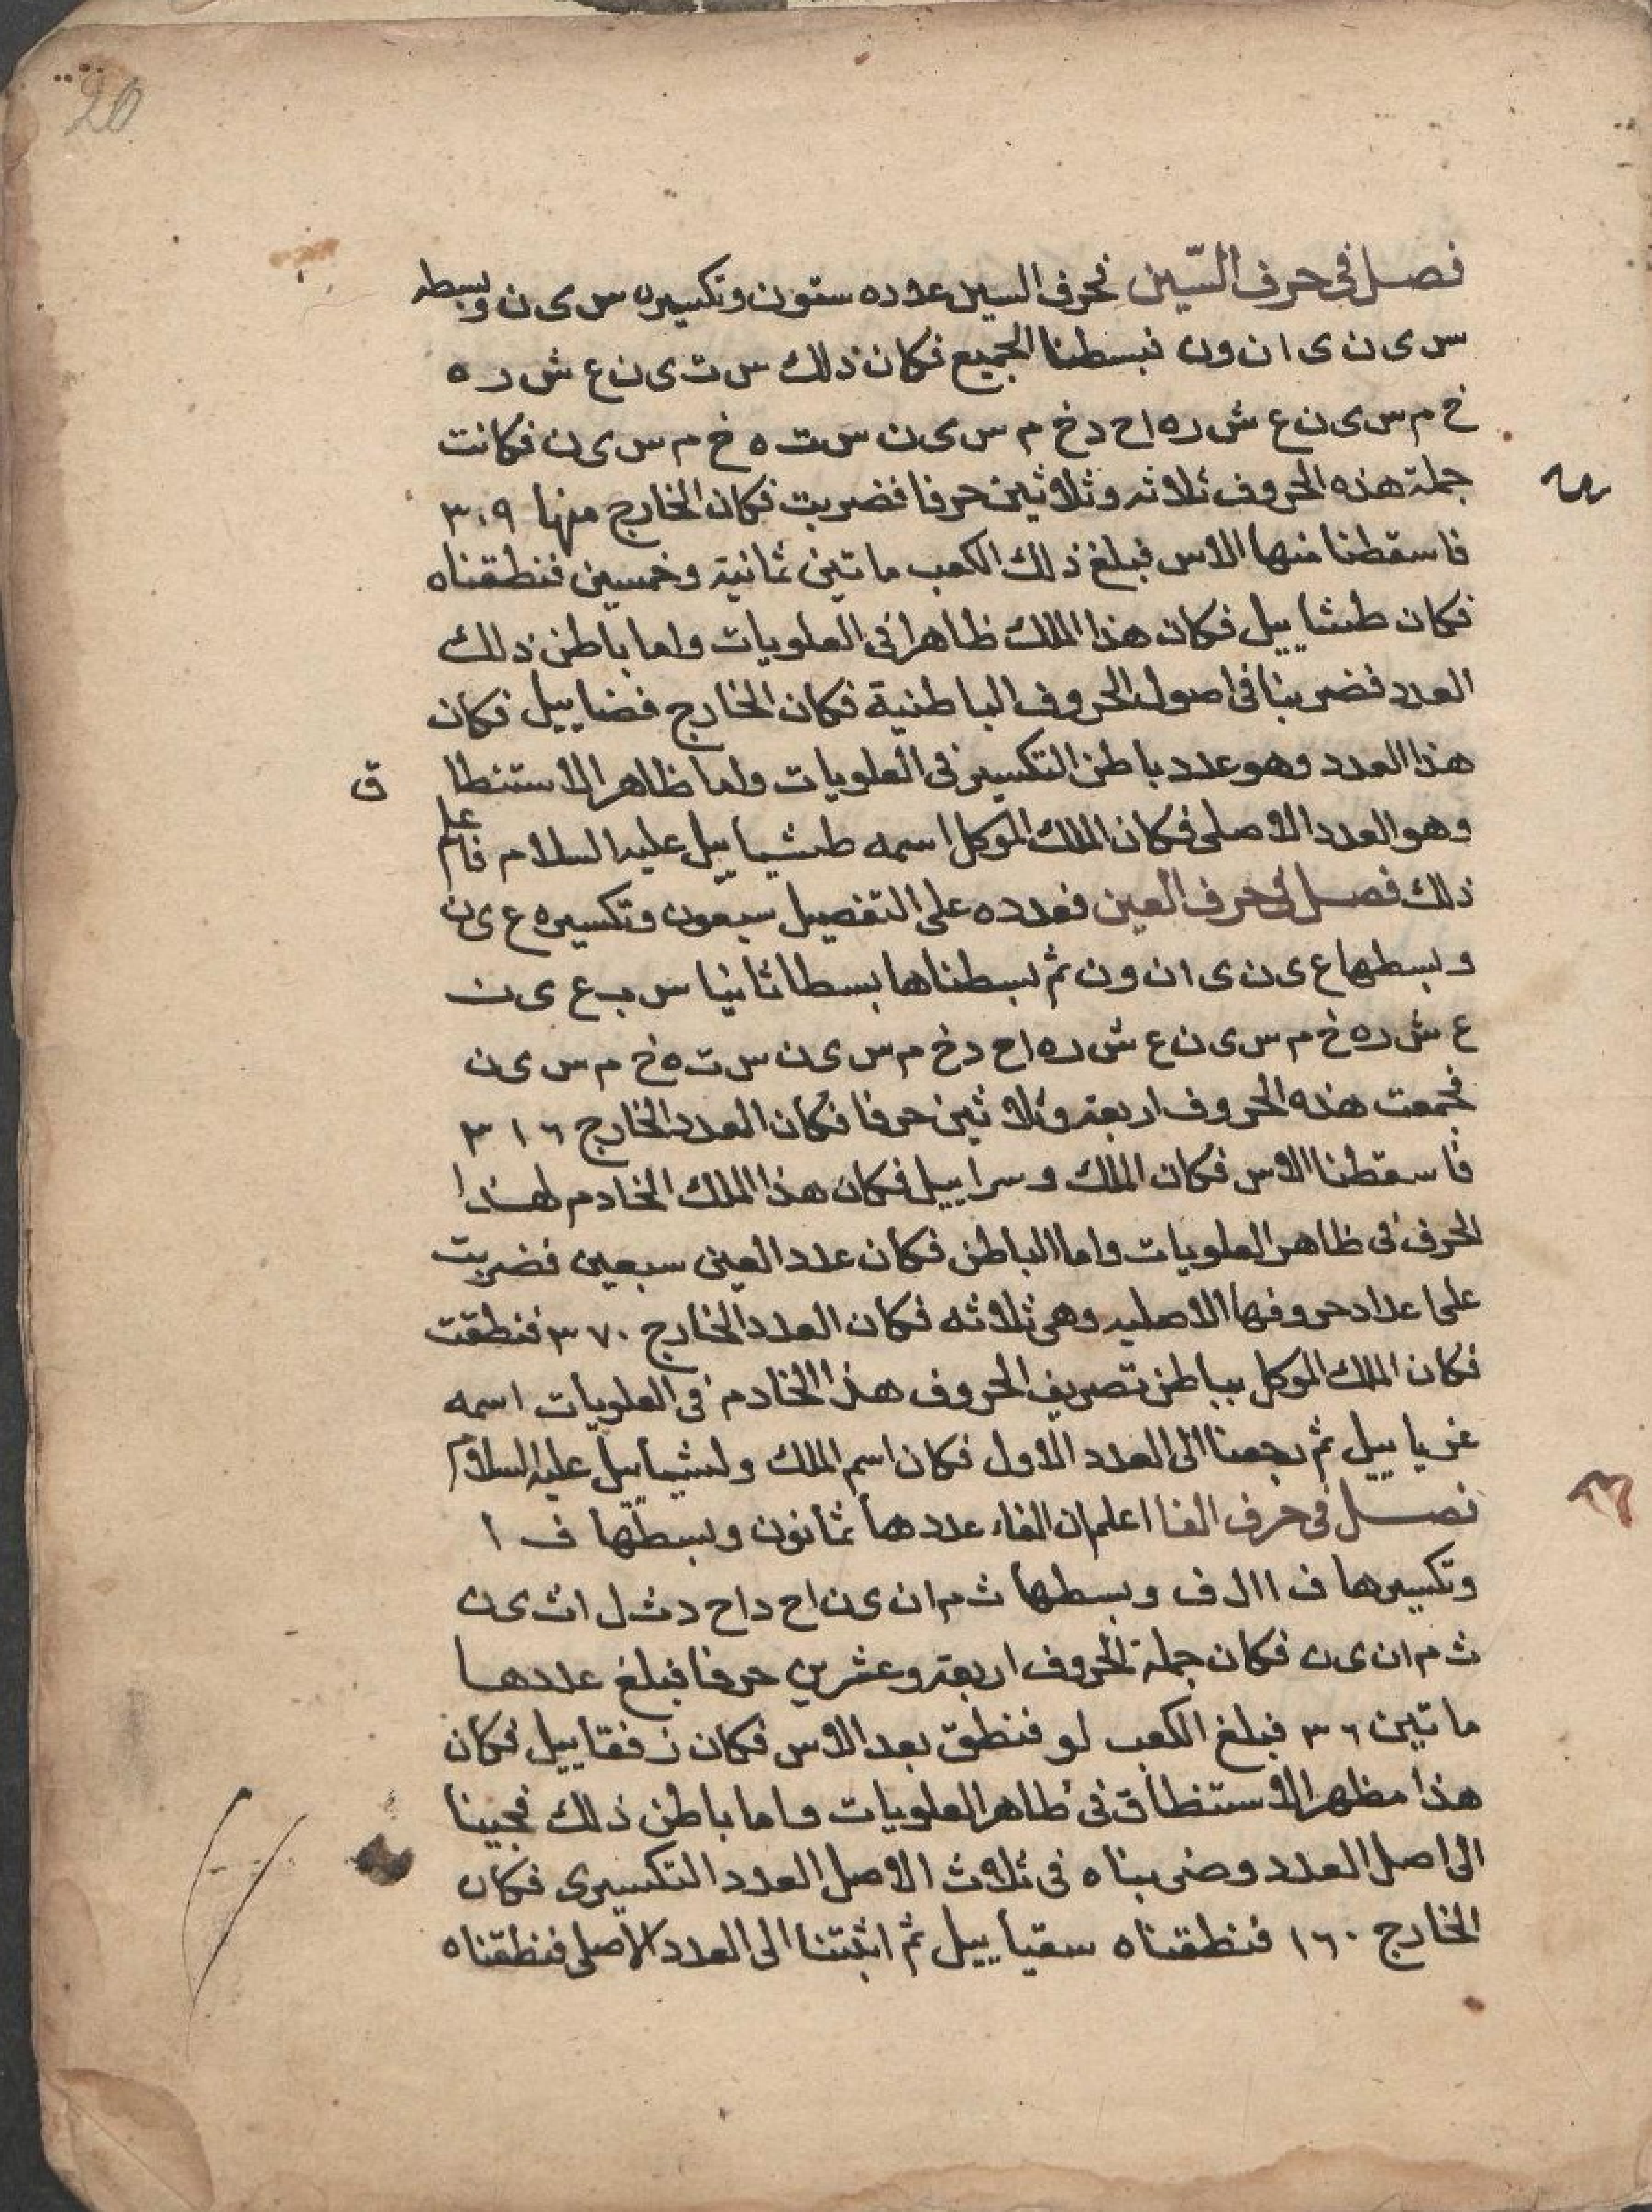 20
فصل في حرف السّين فحرف السين عدده ستون وتكسيره س ى ن وبسطه
س ى ن ى ا ن ون فبسطنا الجميع فكان ذلك س ت ى ن ع ش ر ه
خ م س ى ن ع ش ر ه ا ح د خ م س ى ن س ت ه خ م س ى ن فكانت
جملة هذه الحروف ثلاثه وثلاثين حرفا فضربت فكان الخارج منها ٣٠٩
فاسقطنا منها الاس فبلغ ذلك الكعب ماتين ثمانية وخمسين فنطقناه
فكان طشاييل فكان هذا الملك ظاهرا في العلويات واما باطن ذلك
العدد فضربنا في اصول الحروف الباطنية فكان الخارج فضاييل فكان
هذا العدد وهو عدد باطن التكسير في العلويات واما ظاهر الاستنطا ق
وهو العدد الاصلى فكان الملك الموكل اسمه طشياييل عليه السلام فاعلم
ذلك فصل في حرف العين فعدده على التفصيل سبعون وتكسيره ع ى ن
وبسطها ع ى ن ى ا ن و ن ثم بسطناها بسطا ثانيا س ب ع ى ن
ع ش ر ه خ م س ى ن ع ش ر ه ا ح د خ م س ى ن س ت ه خ م س ى ن
فجمعت هذه الحروف اربعة وثلاثين حرفا فكان العدد الخارج ٣١٦
فاسقطنا الاس فكان الملك وسراييل فكان هذا الملك الخادم لهذا
الحرف في ظاهر العلويات واما الباطن فكان عدد العين سبعين فضربت
على اعداد حروفها الاصليه وهى ثلاثه فكان العدد الخارج ٣٧٠ فنطقت
فكان الملك الموكل بباطن تصريف الحروف هذا الخادم في العلويات اسمه
عزياييل ثم رجعنا الى العدد الاول فكان اسم الملك ولشياييل عليه السلام
فصل في حرف الفا اعلم ان الفاء عددها ثمانون وبسطها ف ا
وتكسيرها ف ا ا ل ف وبسطها ث م ا ن ى ن ا ح د ا ح د ث ل ا ث ى ن
ث م ا ن ى ن فكان جملة الحروف اربعة وعشرين حرفا فبلغ عددها
ماتين ٣٦ فبلغ الكعب لو فنطق بعد الاس فكان زفقاييل فكان
هذا مظهر الاستنطاق في ظاهر العلويات واما باطن ذلك فجينا
الى اصل العدد وضربناه في ثلاث الاصل العدد التكسيرى فكان
الخارج ١٦٠ فنطقناه سقياييل ثم اثبتنا الى العدد الاصلى فنطقناه